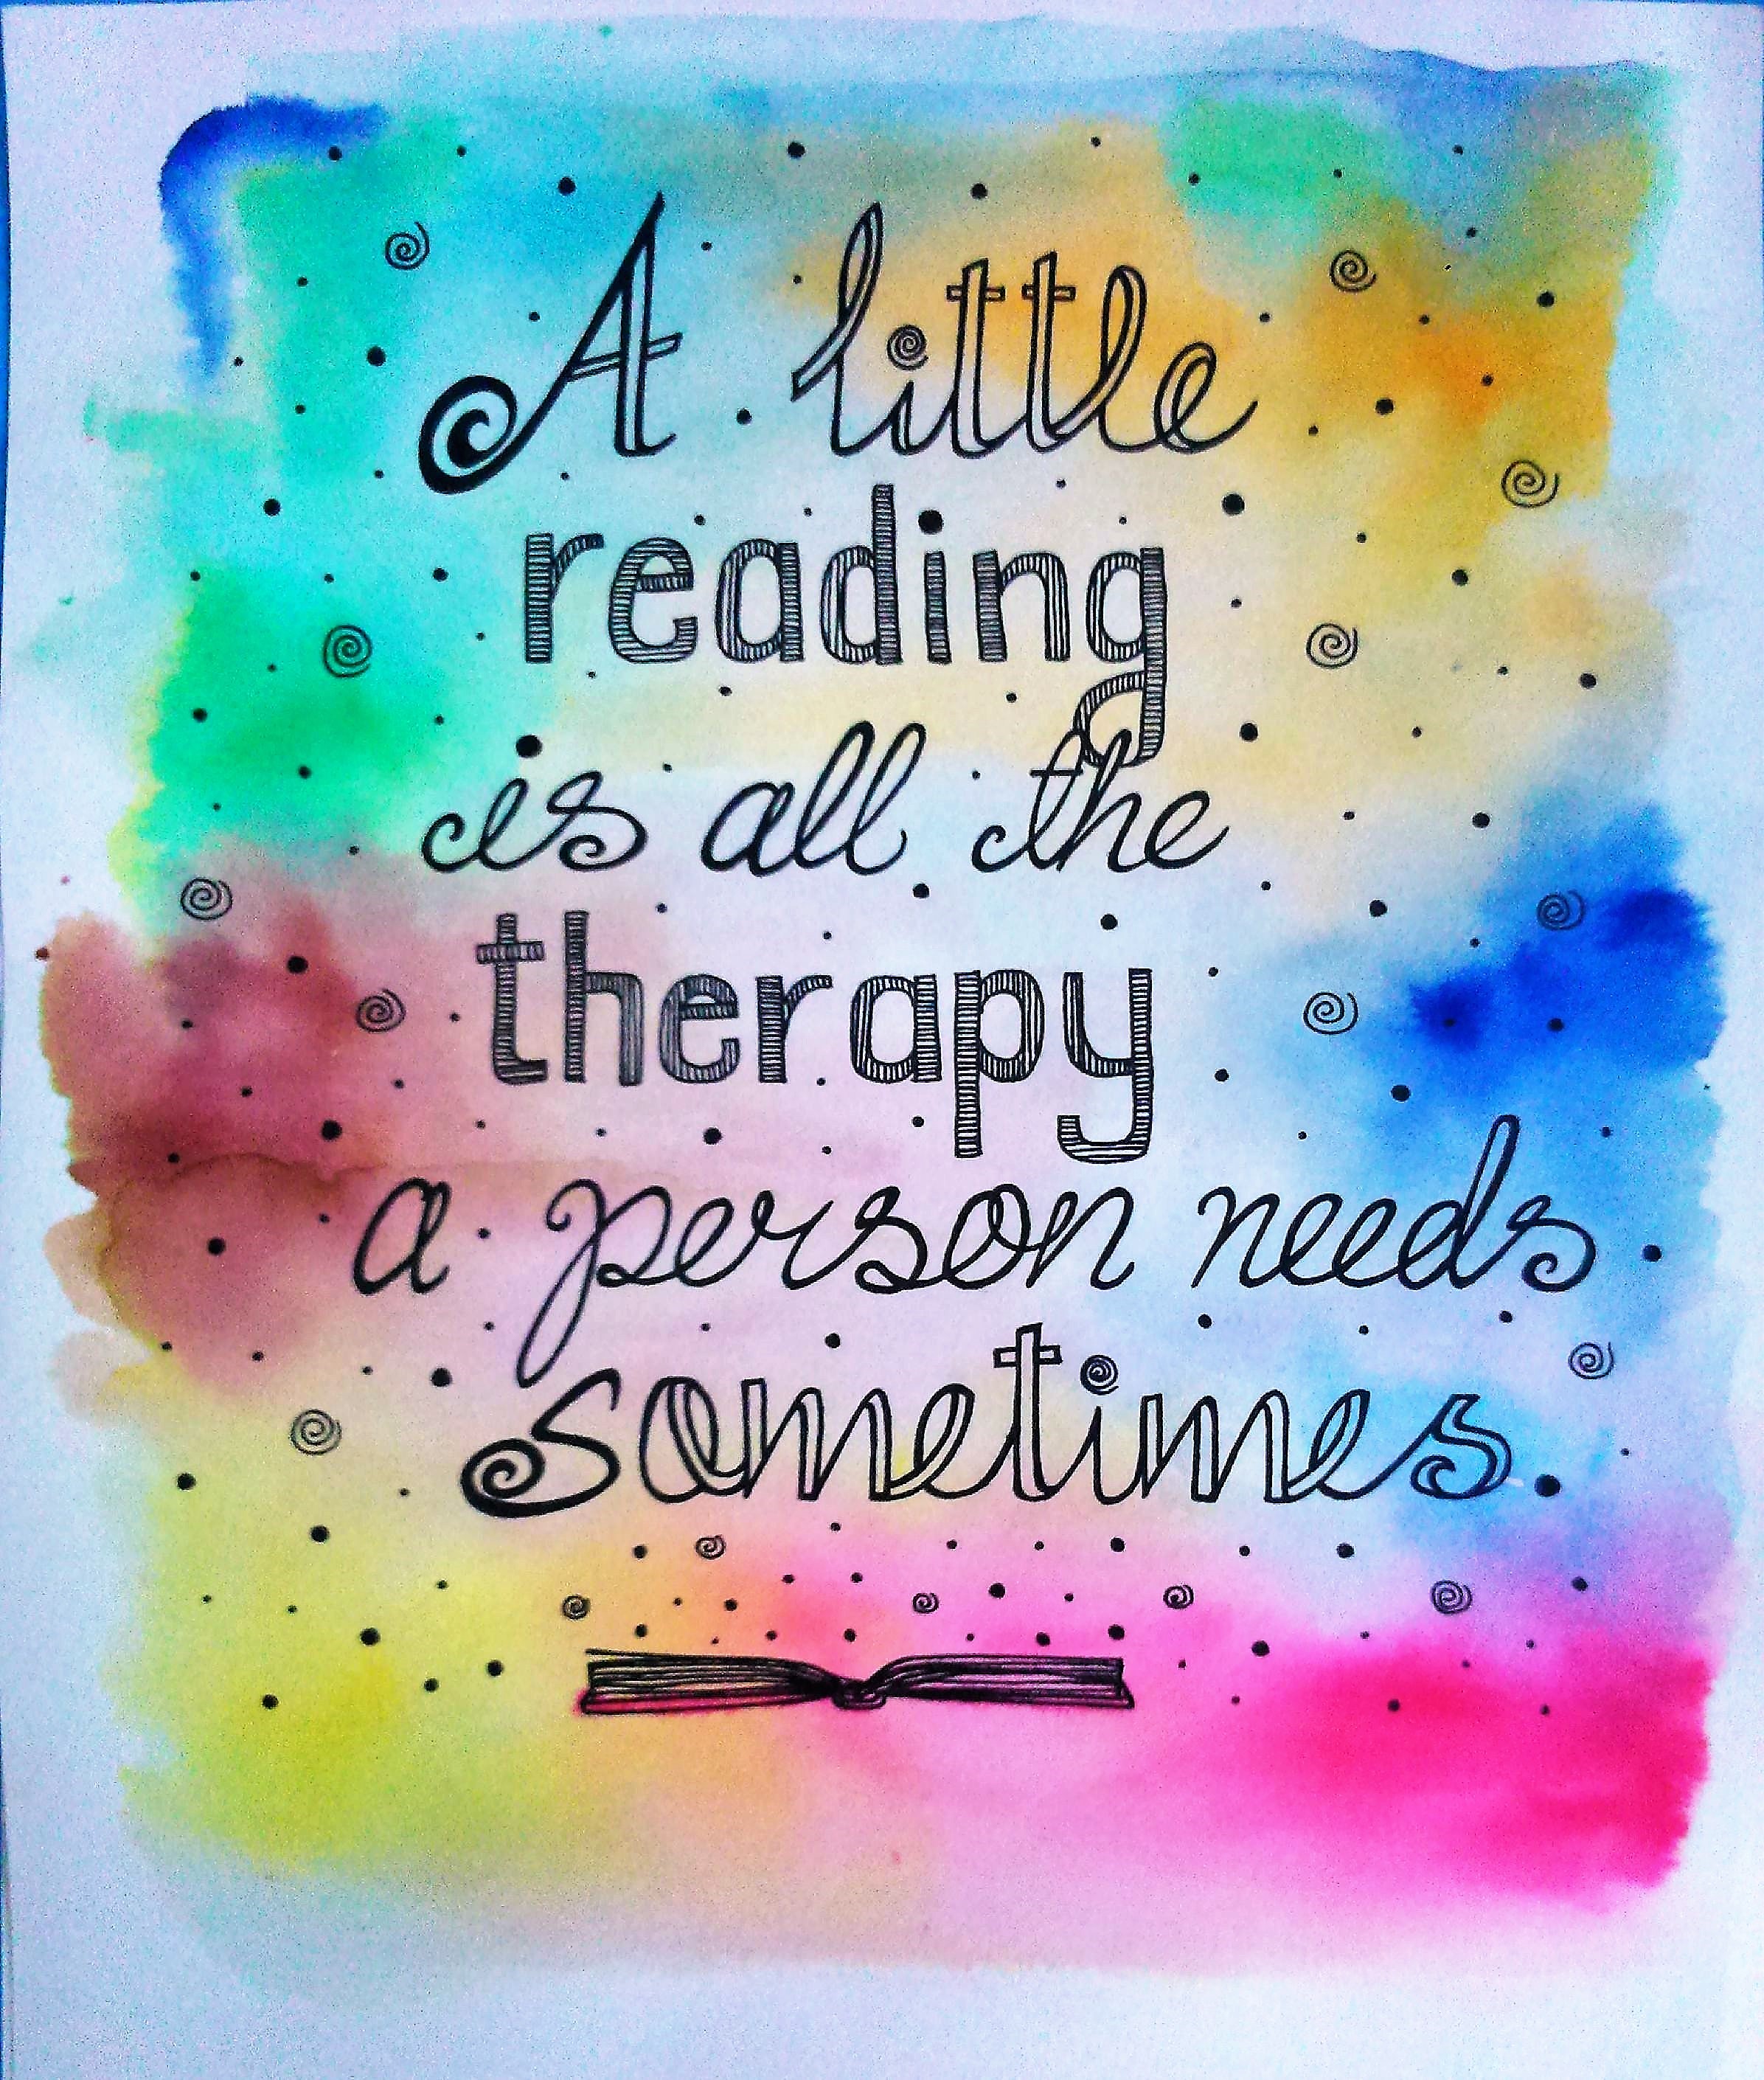 A little
reading
is all the
therapy
a person needs
sometimes.